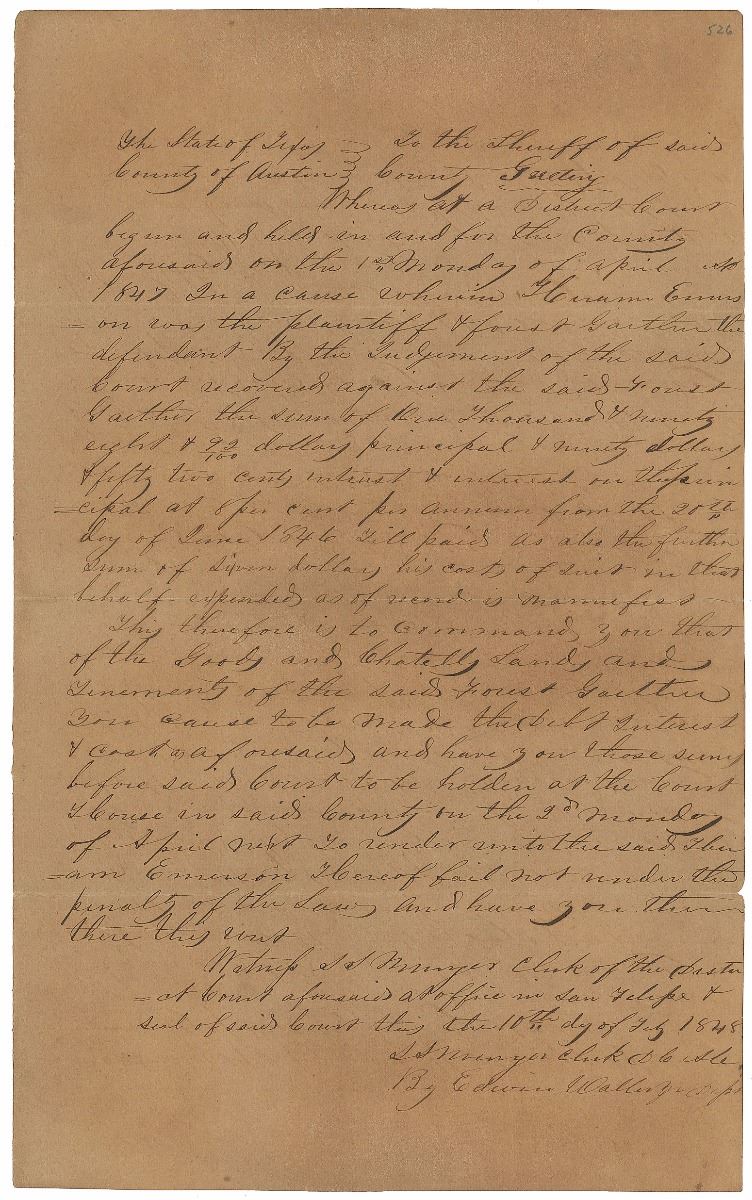 526
The State of Texas } To the Sheriff of said
County of Austin } County Greeting
Whereas at a District Court
begun and held in and for the County
aforesaid on the 1st Monday of April AD
1847 In a cause wherein Hiram Emers
=on was the plaintiff & Forest Gaither the
defendant By the Judgement of the said
Court recovered against the said Forest
Gaither the sum of One Thousand & ninety
eight & 92/100 dollars principal & ninty dollars
& fifty two cents interest & interest on the prin
=cipal at 8 per cent per annum from the 20th
day of June 1846 till paid as also the further
sum of dollars his costs of suit in that
behalf expended as of record is mannefest
This therefore is to command you that
of the Goods and Chatells Lands and
Tenements of the said Forest Gaither
you cause to be made the Debt Interest
& costs aforesaid and have you those sums
before said Court to be holden at the Court
House in said County on the 2d Monday
of April next To render unto the said Hir
=am Emerson Hereof fail not under the
penalty of the Law and have you then
there this writ
Witness S S Munger Clerk of the Distr
=ct Court aforesaid at office in San Felipe &
seal of said Court this the 10th day of Feby 1848
S S Munger Clerk D C
By Edwin Waller Jr Dept